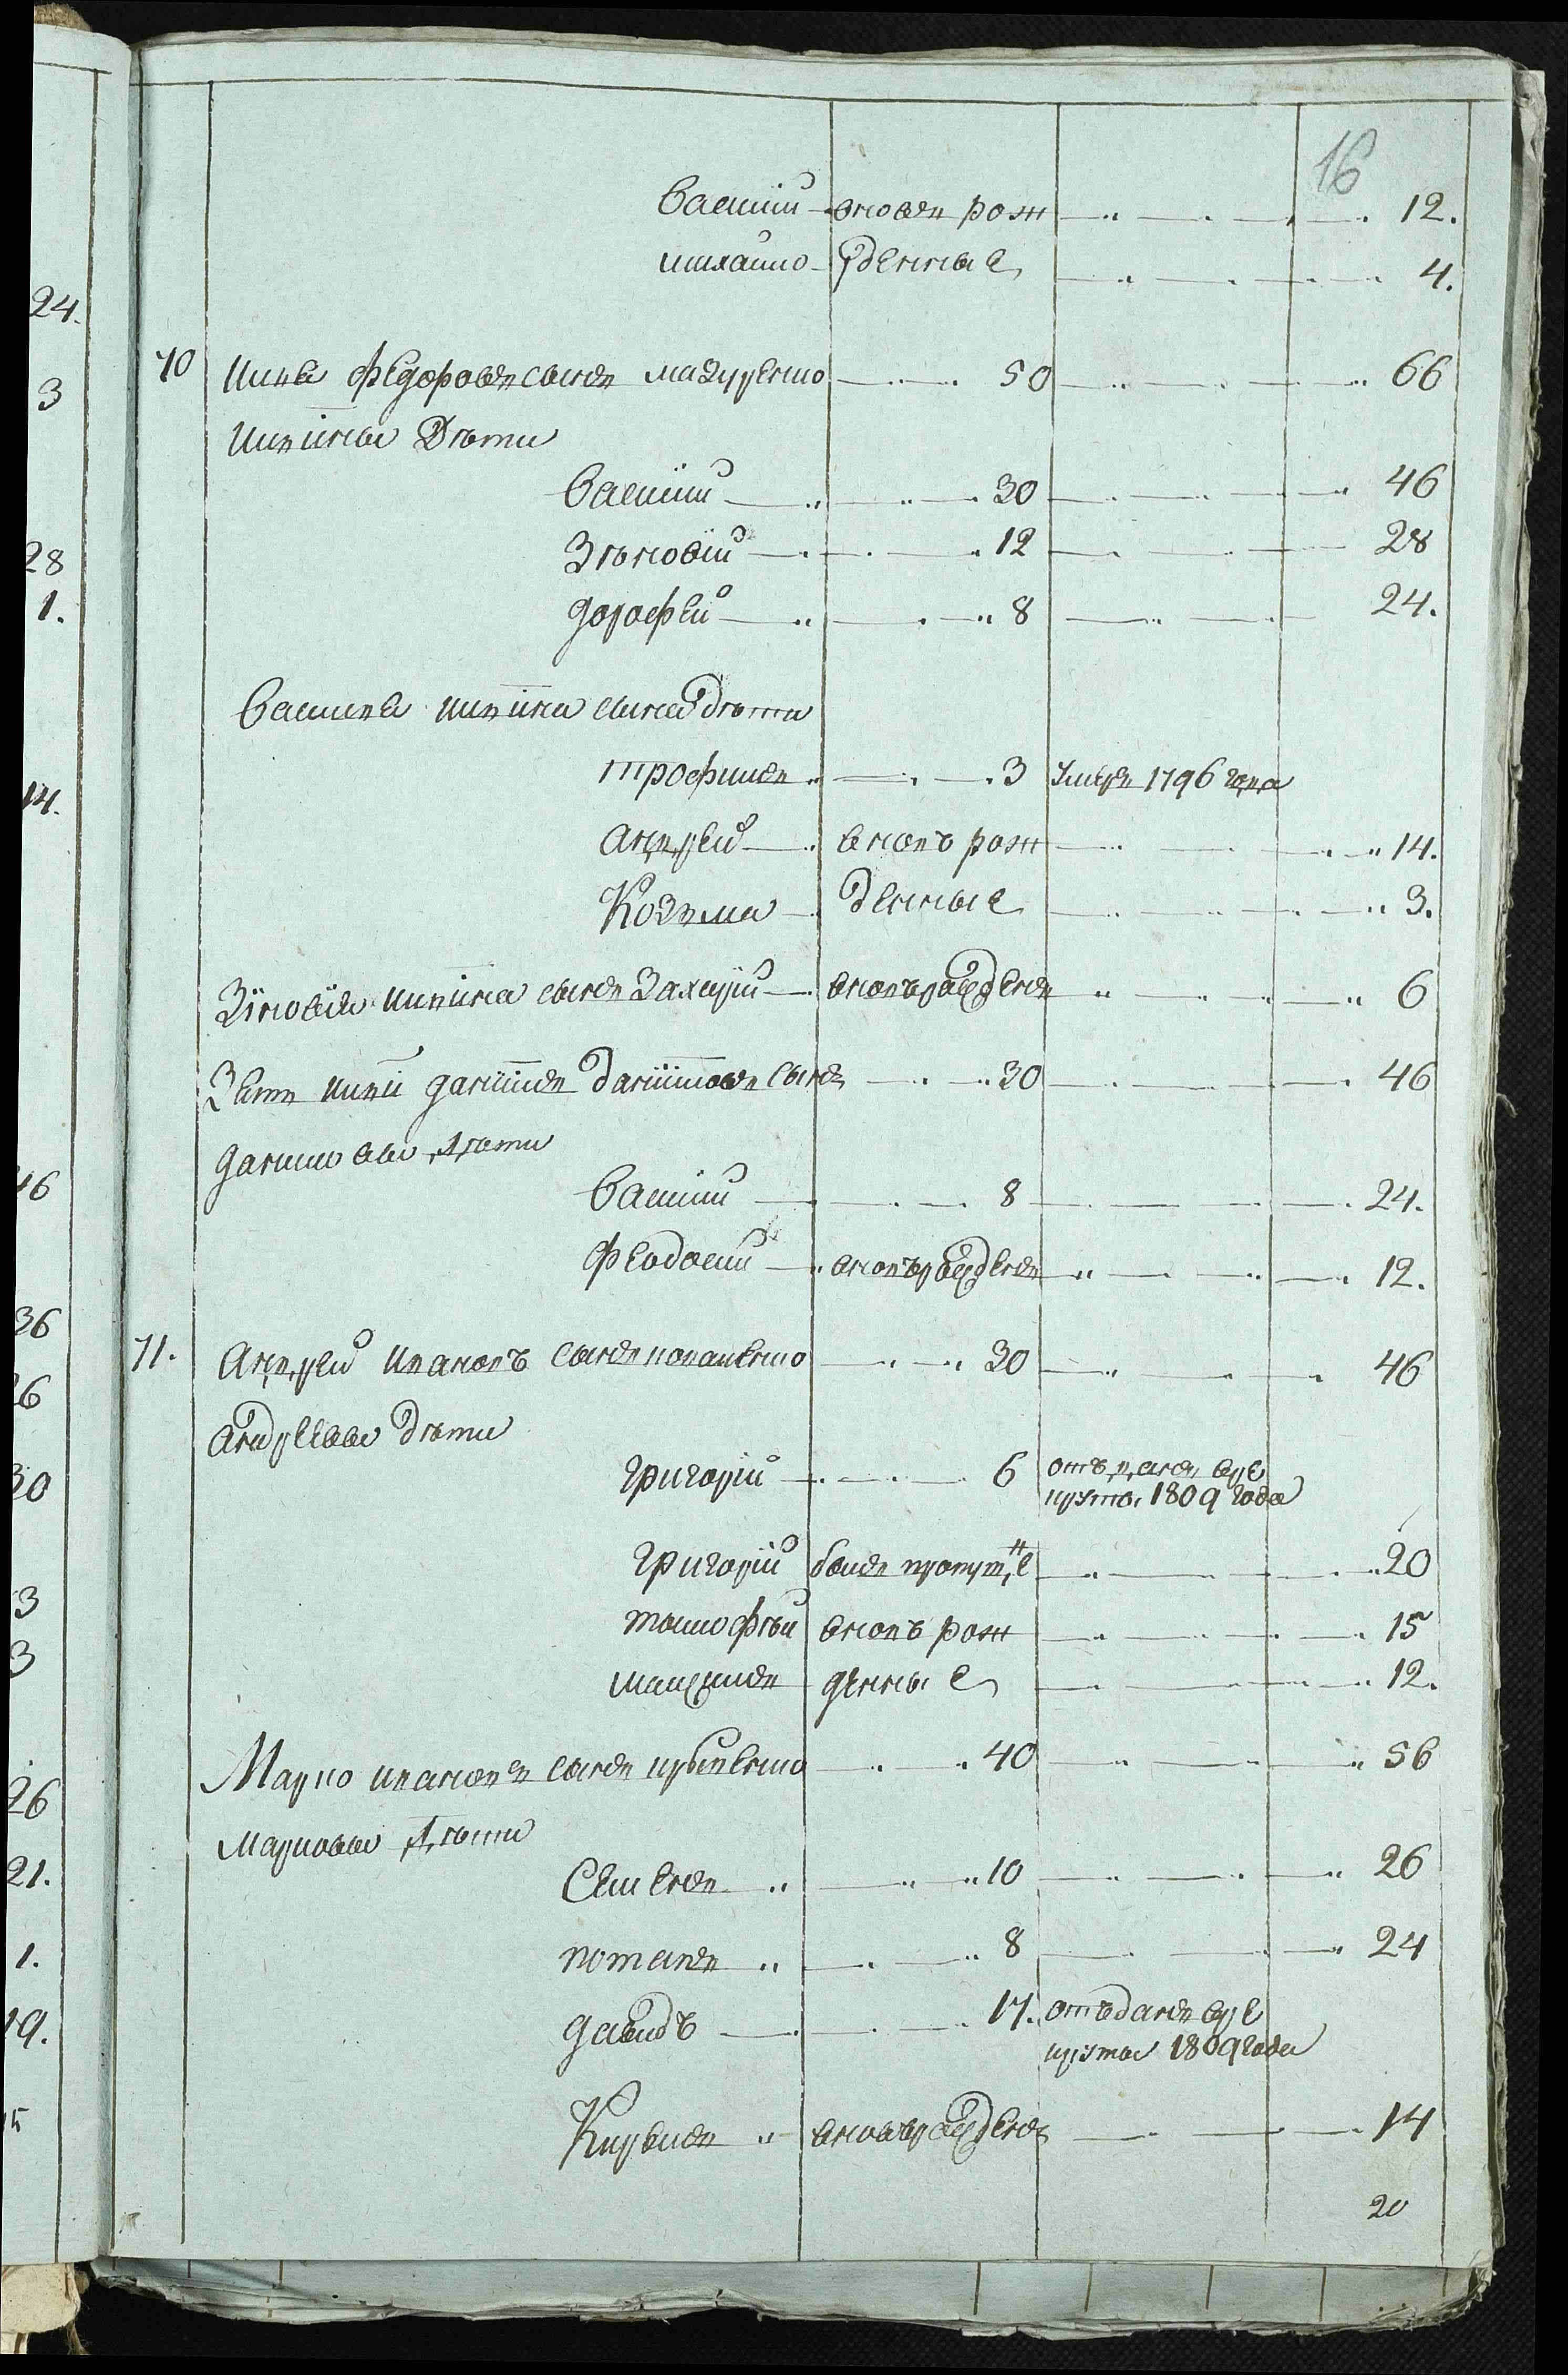 16
Василии вновь рож 12.
михаило денные 4.
70 Илья Федоровъ сынъ мазуренко 50 66
Ильины Дѣти
Василии 30 46
Зѣновіи 12 28
дорофеи 8 24.
Василья ильина сына дѣти
трофимъ 3 умеръ 1796 года
андреи вновъ рож 14.
Козьма денные 3.
Зіновія ильина сынъ Захаріи вновърожденъ 6
Зять ильи даниилъ даниловъ сынъ 30 46
даниловы дѣти
Василии 8 24.
Феодосии вновърожденъ 12.
71. андреи ивановъ сынъ 30 46
андреевы дѣти
григоріи 6 отъданъ вре
круты 1809 года
григоріи былъ пропущ 20
тимофѣи вновъ рож 15
максимъ денные 12.
Марко ивановъ сынъ 40 56
марковы дѣти
Семенъ 10 26
потапъ 8 24
давидъ 17. отъданъ вре
круты 1809 года
Кирылъ вновърожденъ 14
20
24.
3
28
1.
14.
46
36
26
30
3
3
26
21.
1.
19.
15